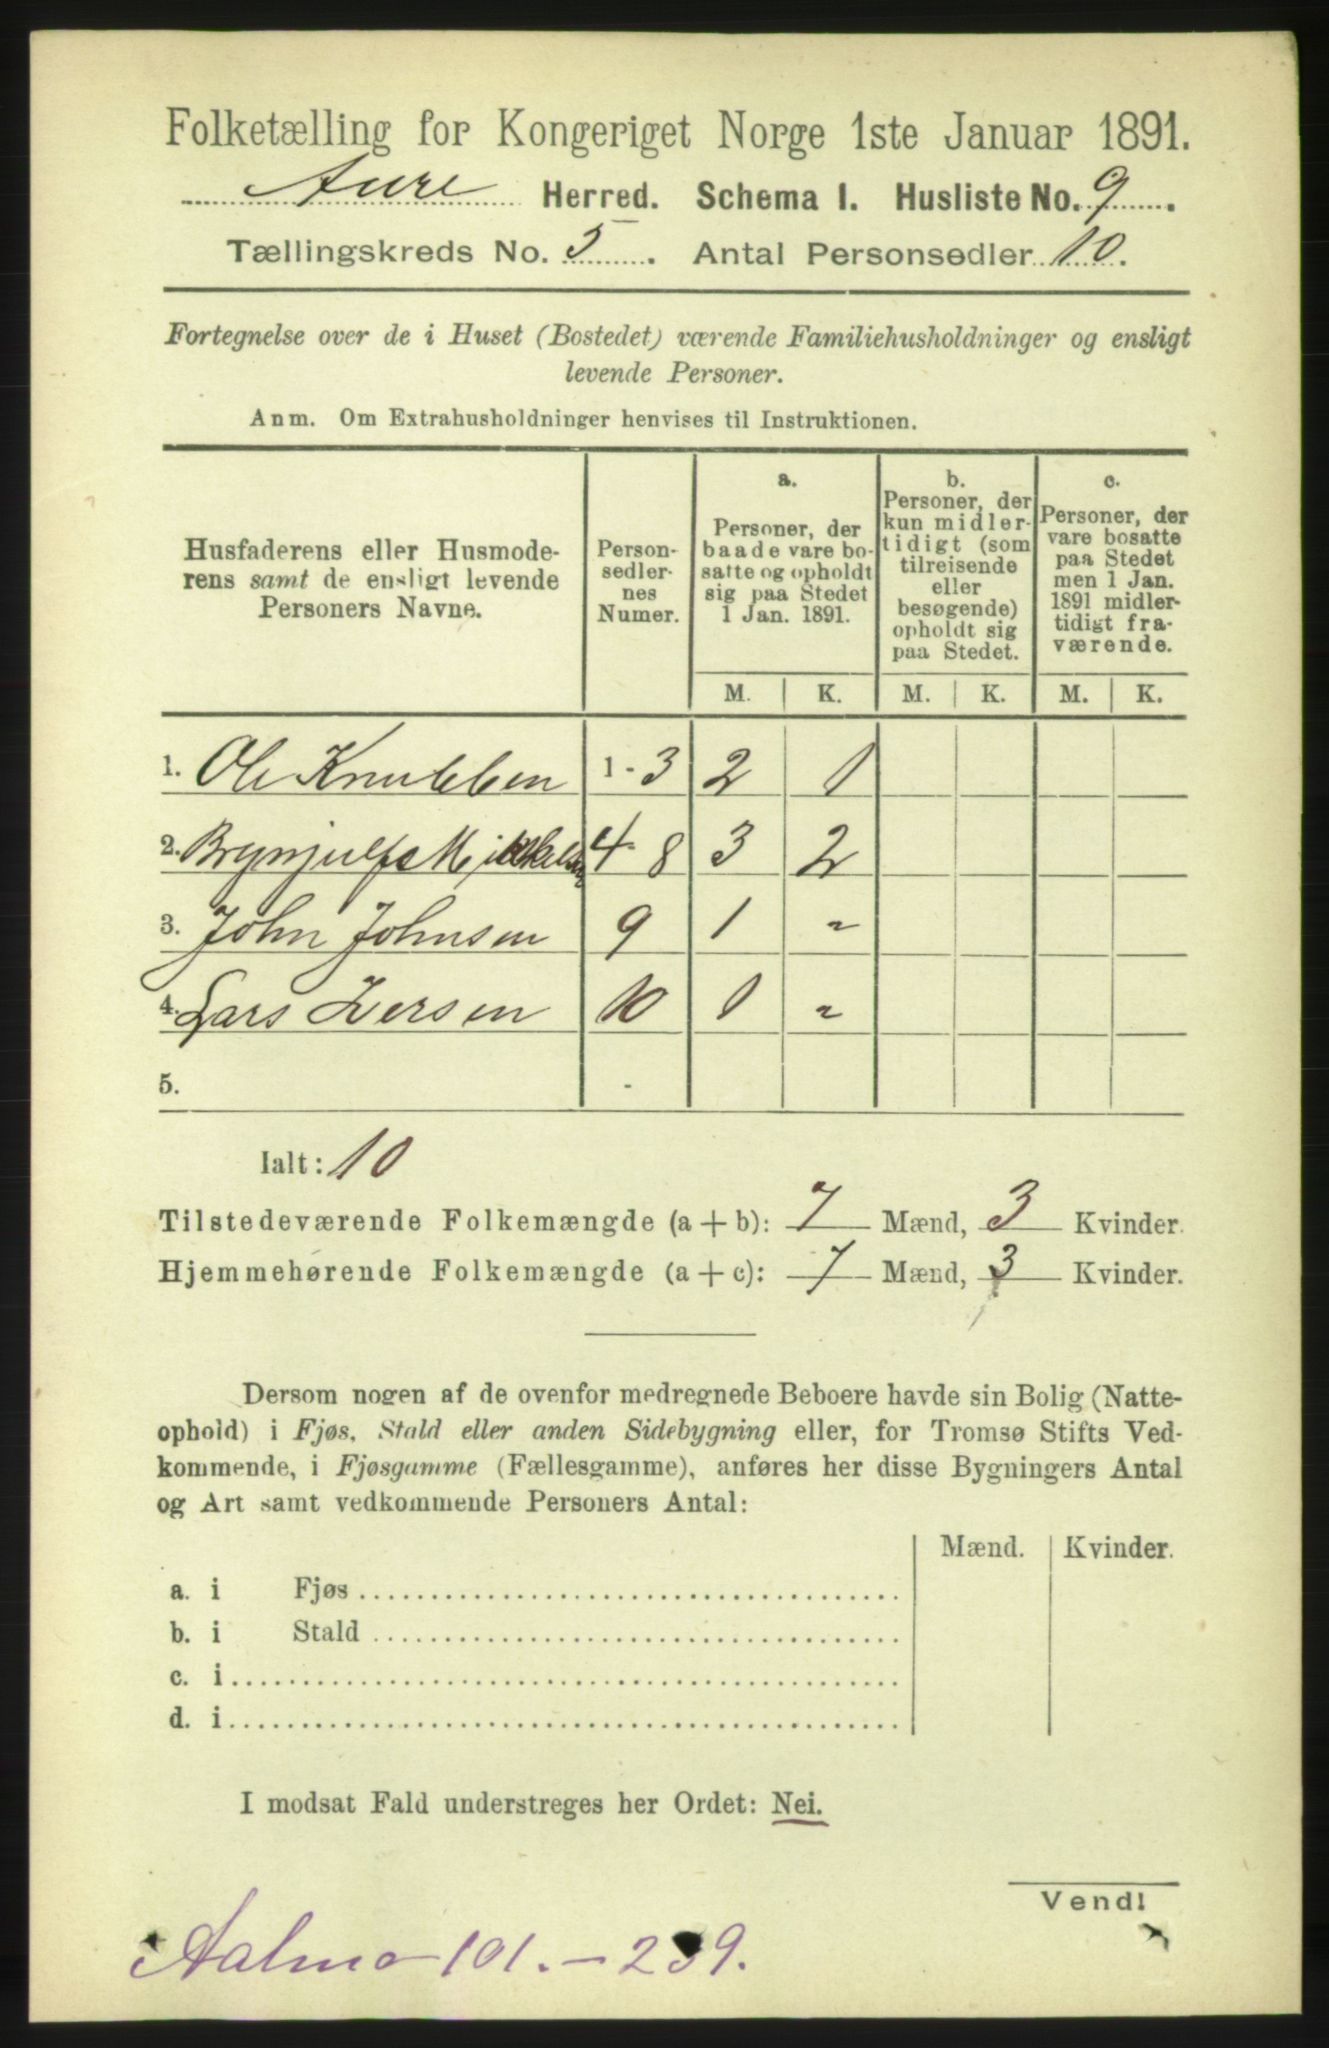 Folketælling for Kongeriget Norge 1ste Januar 1891.
Aure Herred. Schema I. Husliste No. 9.
Tællingskreds No. 5. Antal Personsedler 10.
Fortegnelse over de i Huset (Bostedet) værende Familiehusholdninger og ensligt
levende Personer.
Anm. Om Extrahusholdninger henvises til Instruktionen.
Husfaderens eller Husmode-
rens samt de ensligt levende
Personers Navne.
Person-
sedler-
nes
Numer.
a.
Personer, der
baade vare bo-
satte og opholdt
sig paa Stedet
1 Jan. 1891.
b.
Personer, der
kun midler-
tidigt (som
tilreisende
eller
besøgende)
opholdt sig
paa Stedet.
c.
Personer, der
vare bosatte
paa Stedet
men 1 Jan.
1891 midler-
tidigt fra-
værende.
M. K. M. K. M. K.
1. Ole Knubben 1-3 2 1
2. Brynjulf 4-8 3 2
3. John Johnsen 9 1 "
4. Lars Iversen 10 1 "
5. -
Ialt: 10
Tilstedeværende Folkemængde (a + b): 7 Mænd, 3 Kvinder.
Hjemmehørende Folkemængde (a + c): 7 Mænd, 3 Kvinder.
Dersom nogen af de ovenfor medregnede Beboere havde sin Bolig (Natte-
ophold) i Fjøs, Stald eller anden Sidebygning eller, for Tromsø Stifts Ved-
kommende, i Fjøsgamme (Fællesgamme), anføres her disse Bygningers Antal
og Art samt vedkommende Personers Antal:
Mænd. Kvinder.
a. i Fjøs
b. i Stald
c. i
d. i
I modsat Fald understreges her Ordet: Nei.
Vend!
Aalmo 101. - 239.